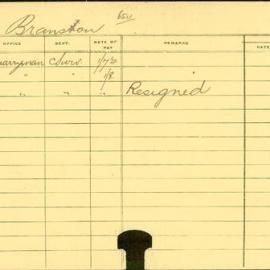 Branston
OFFICE DEPT. RATE OF PAY REMARKS DATE
arryman 1/7½
" " 1/8 Resigned